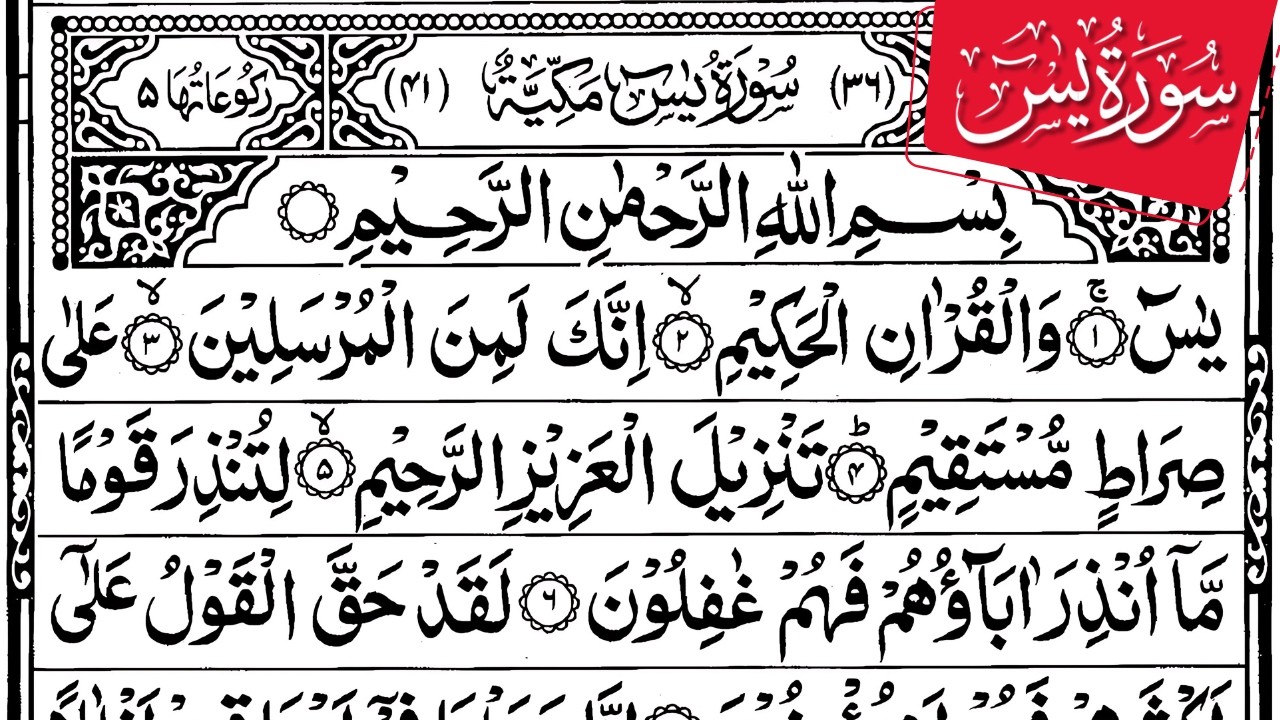 سُوْرَةُ يٰسٓ
(۳۶) سُوْرَةُ يٰسٓ مَكِّيَّةٌ (۴۱) رُكُوْعَاتُهَا ۵
بِسْمِ اللّٰهِ الرَّحْمٰنِ الرَّحِيْمِ
يٰسٓ ۚ﴿۱﴾ وَالْقُرْاٰنِ الْحَكِيْمِ ۙ﴿۲﴾ اِنَّكَ لَمِنَ الْمُرْسَلِيْنَ ۙ﴿۳﴾ عَلٰى
صِرَاطٍ مُّسْتَقِيْمٍ ؕ﴿۴﴾ تَنْزِيْلَ الْعَزِيْزِ الرَّحِيْمِ ۙ﴿۵﴾ لِتُنْذِرَ قَوْمًا
مَّاۤ اُنْذِرَ اٰبَآؤُهُمْ فَهُمْ غٰفِلُوْنَ ﴿۶﴾ لَقَدْ حَقَّ الْقَوْلُ عَلٰۤى